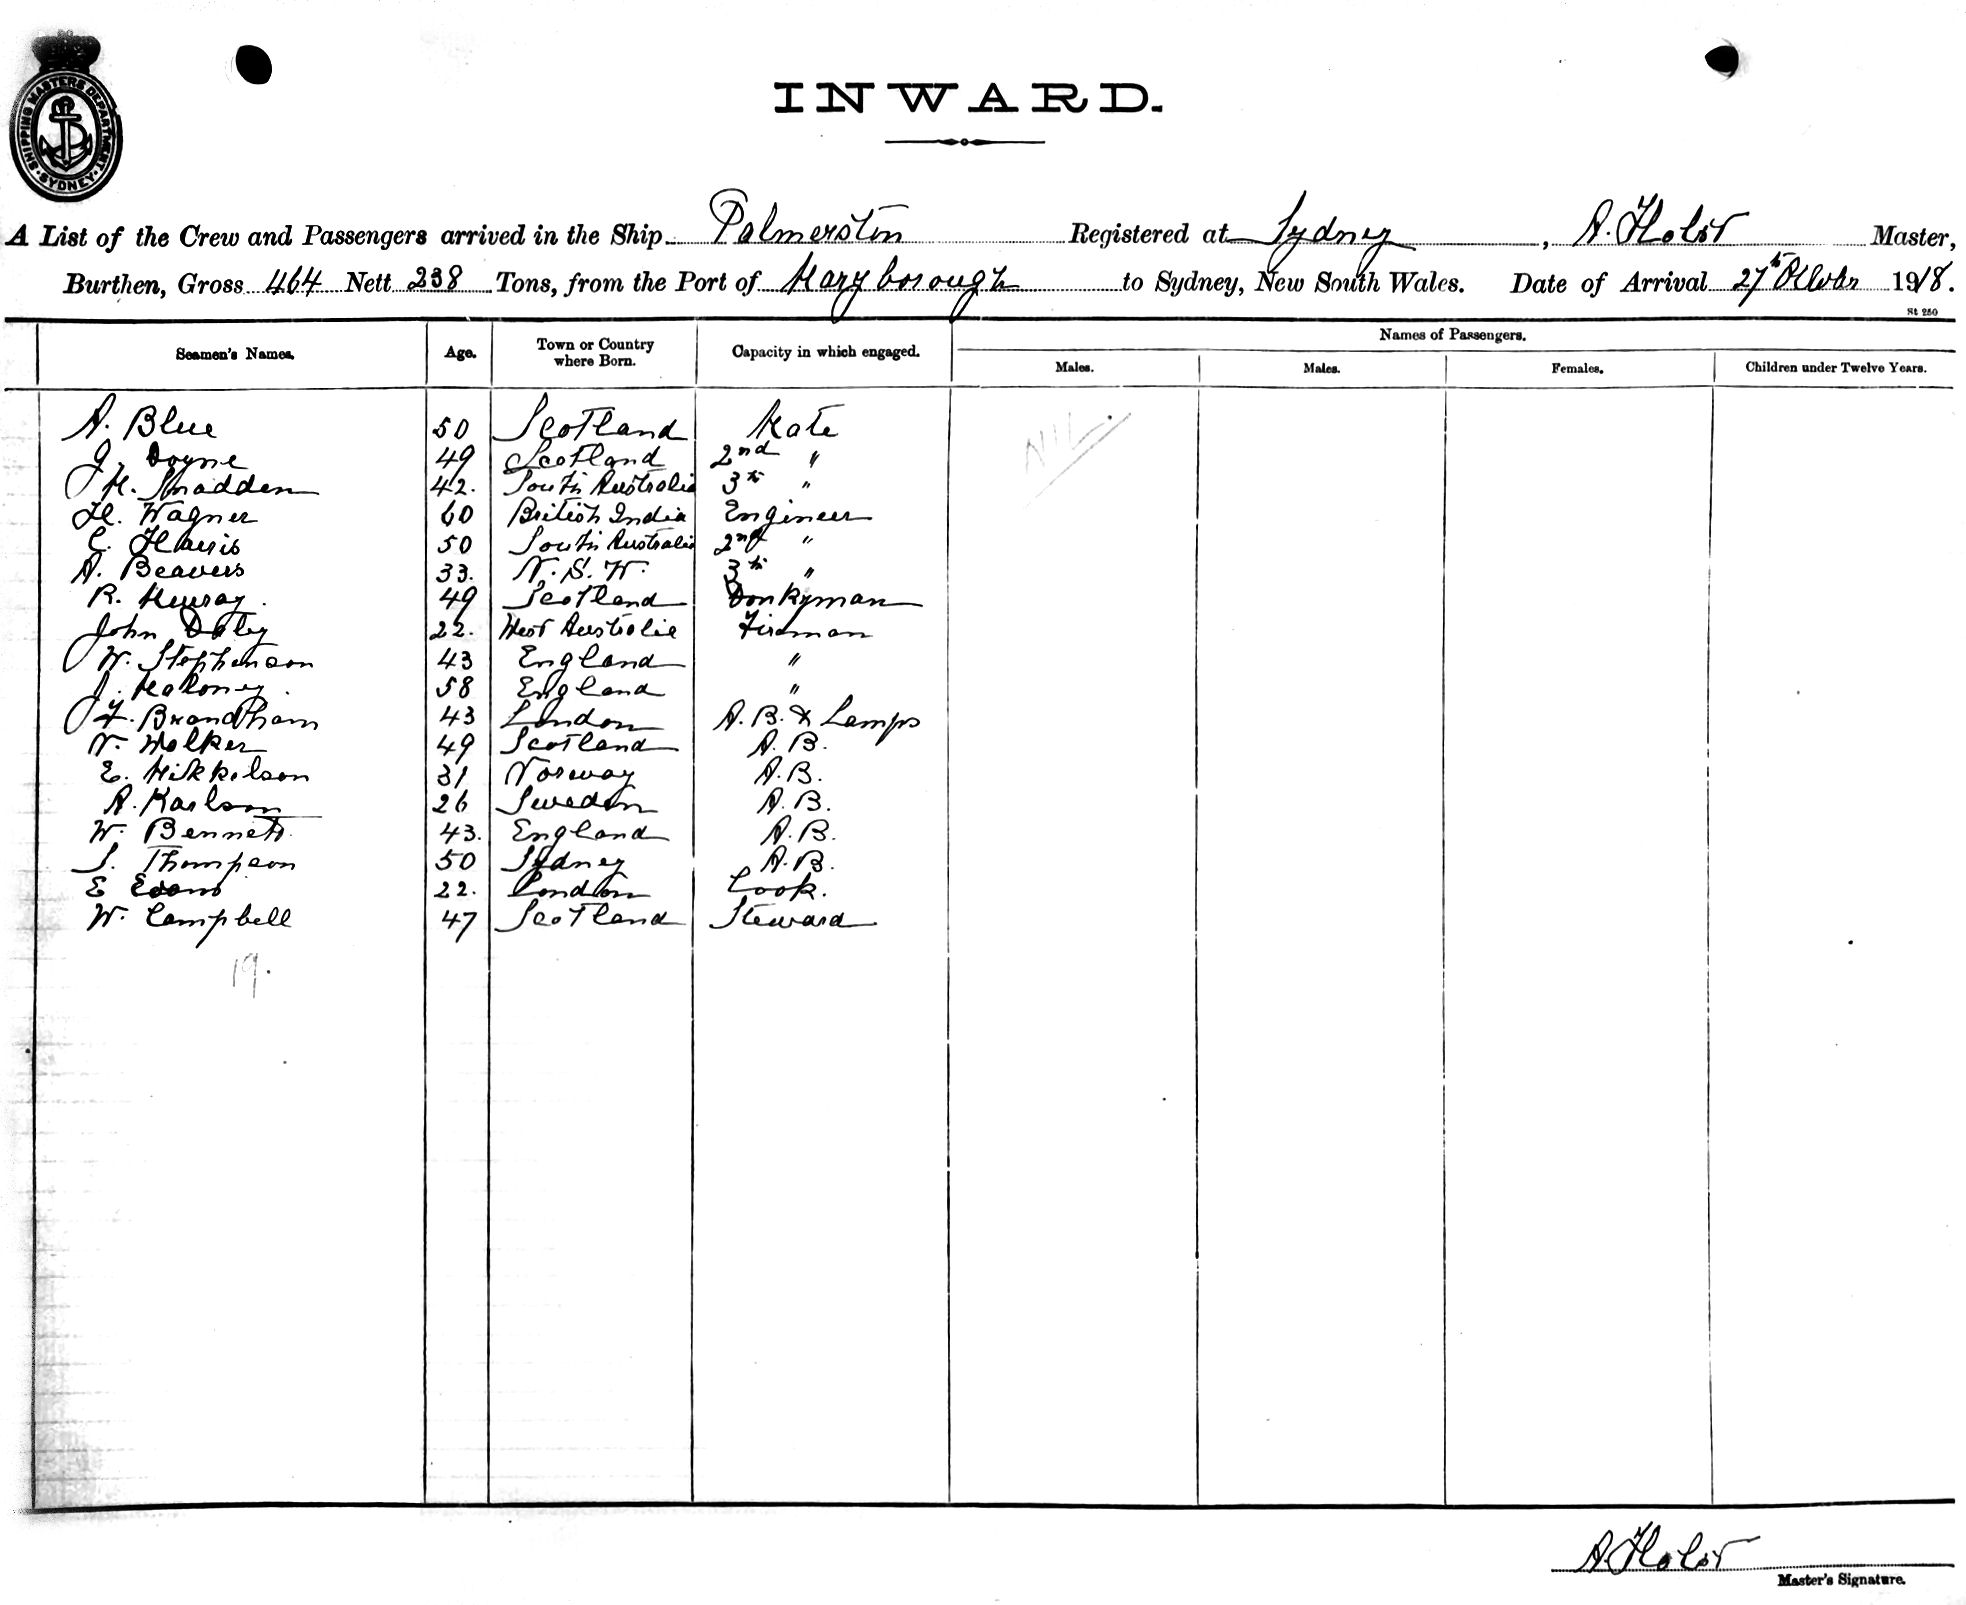 SHIPPING MASTERS DEPARTMENT
SYDNEY
INWARD.
A List of the Crew and Passengers arrived in the Ship Palmerston Registered at Sydney, A. Holst Master,
Burthen, Gross 464 Nett 238 Tons, from the Port of Maryborough to Sydney, New South Wales. Date of Arrival 27th October 1918.
St 250
Seamen's Names. Age. Town or Country where Born. Capacity in which engaged. Names of Passengers.
Males. Males. Females. Children under Twelve Years.
A. Blue 50 Scotland Mate NIL.
J. Doyne 49 Scotland 2nd "
H. Snadden 42. South Australia 3th "
H. Wagner 60 British India Engineer
C. Harris 50 South Australia 2nd "
A. Beavers 33. N. S. W. 3th "
R. Murray. 49 Scotland Donkyman
John Daly 22. West Australia Fireman
W. Stephenson 43 England "
J. Maloney. 58 England "
F. Brandham 43 London A. B. & Lamps
N. Walker 49 Scotland A. B.
E. Mikkelson 31 Norway A. B.
A. Karlson 26 Sweden A. B.
W. Bennett. 43. England A. B.
J. Thompson 50 Sydney A. B.
E Evans 22. London Cook.
W. Campbell 47 Scotland Steward
19.
A. Holst
Master's Signature.